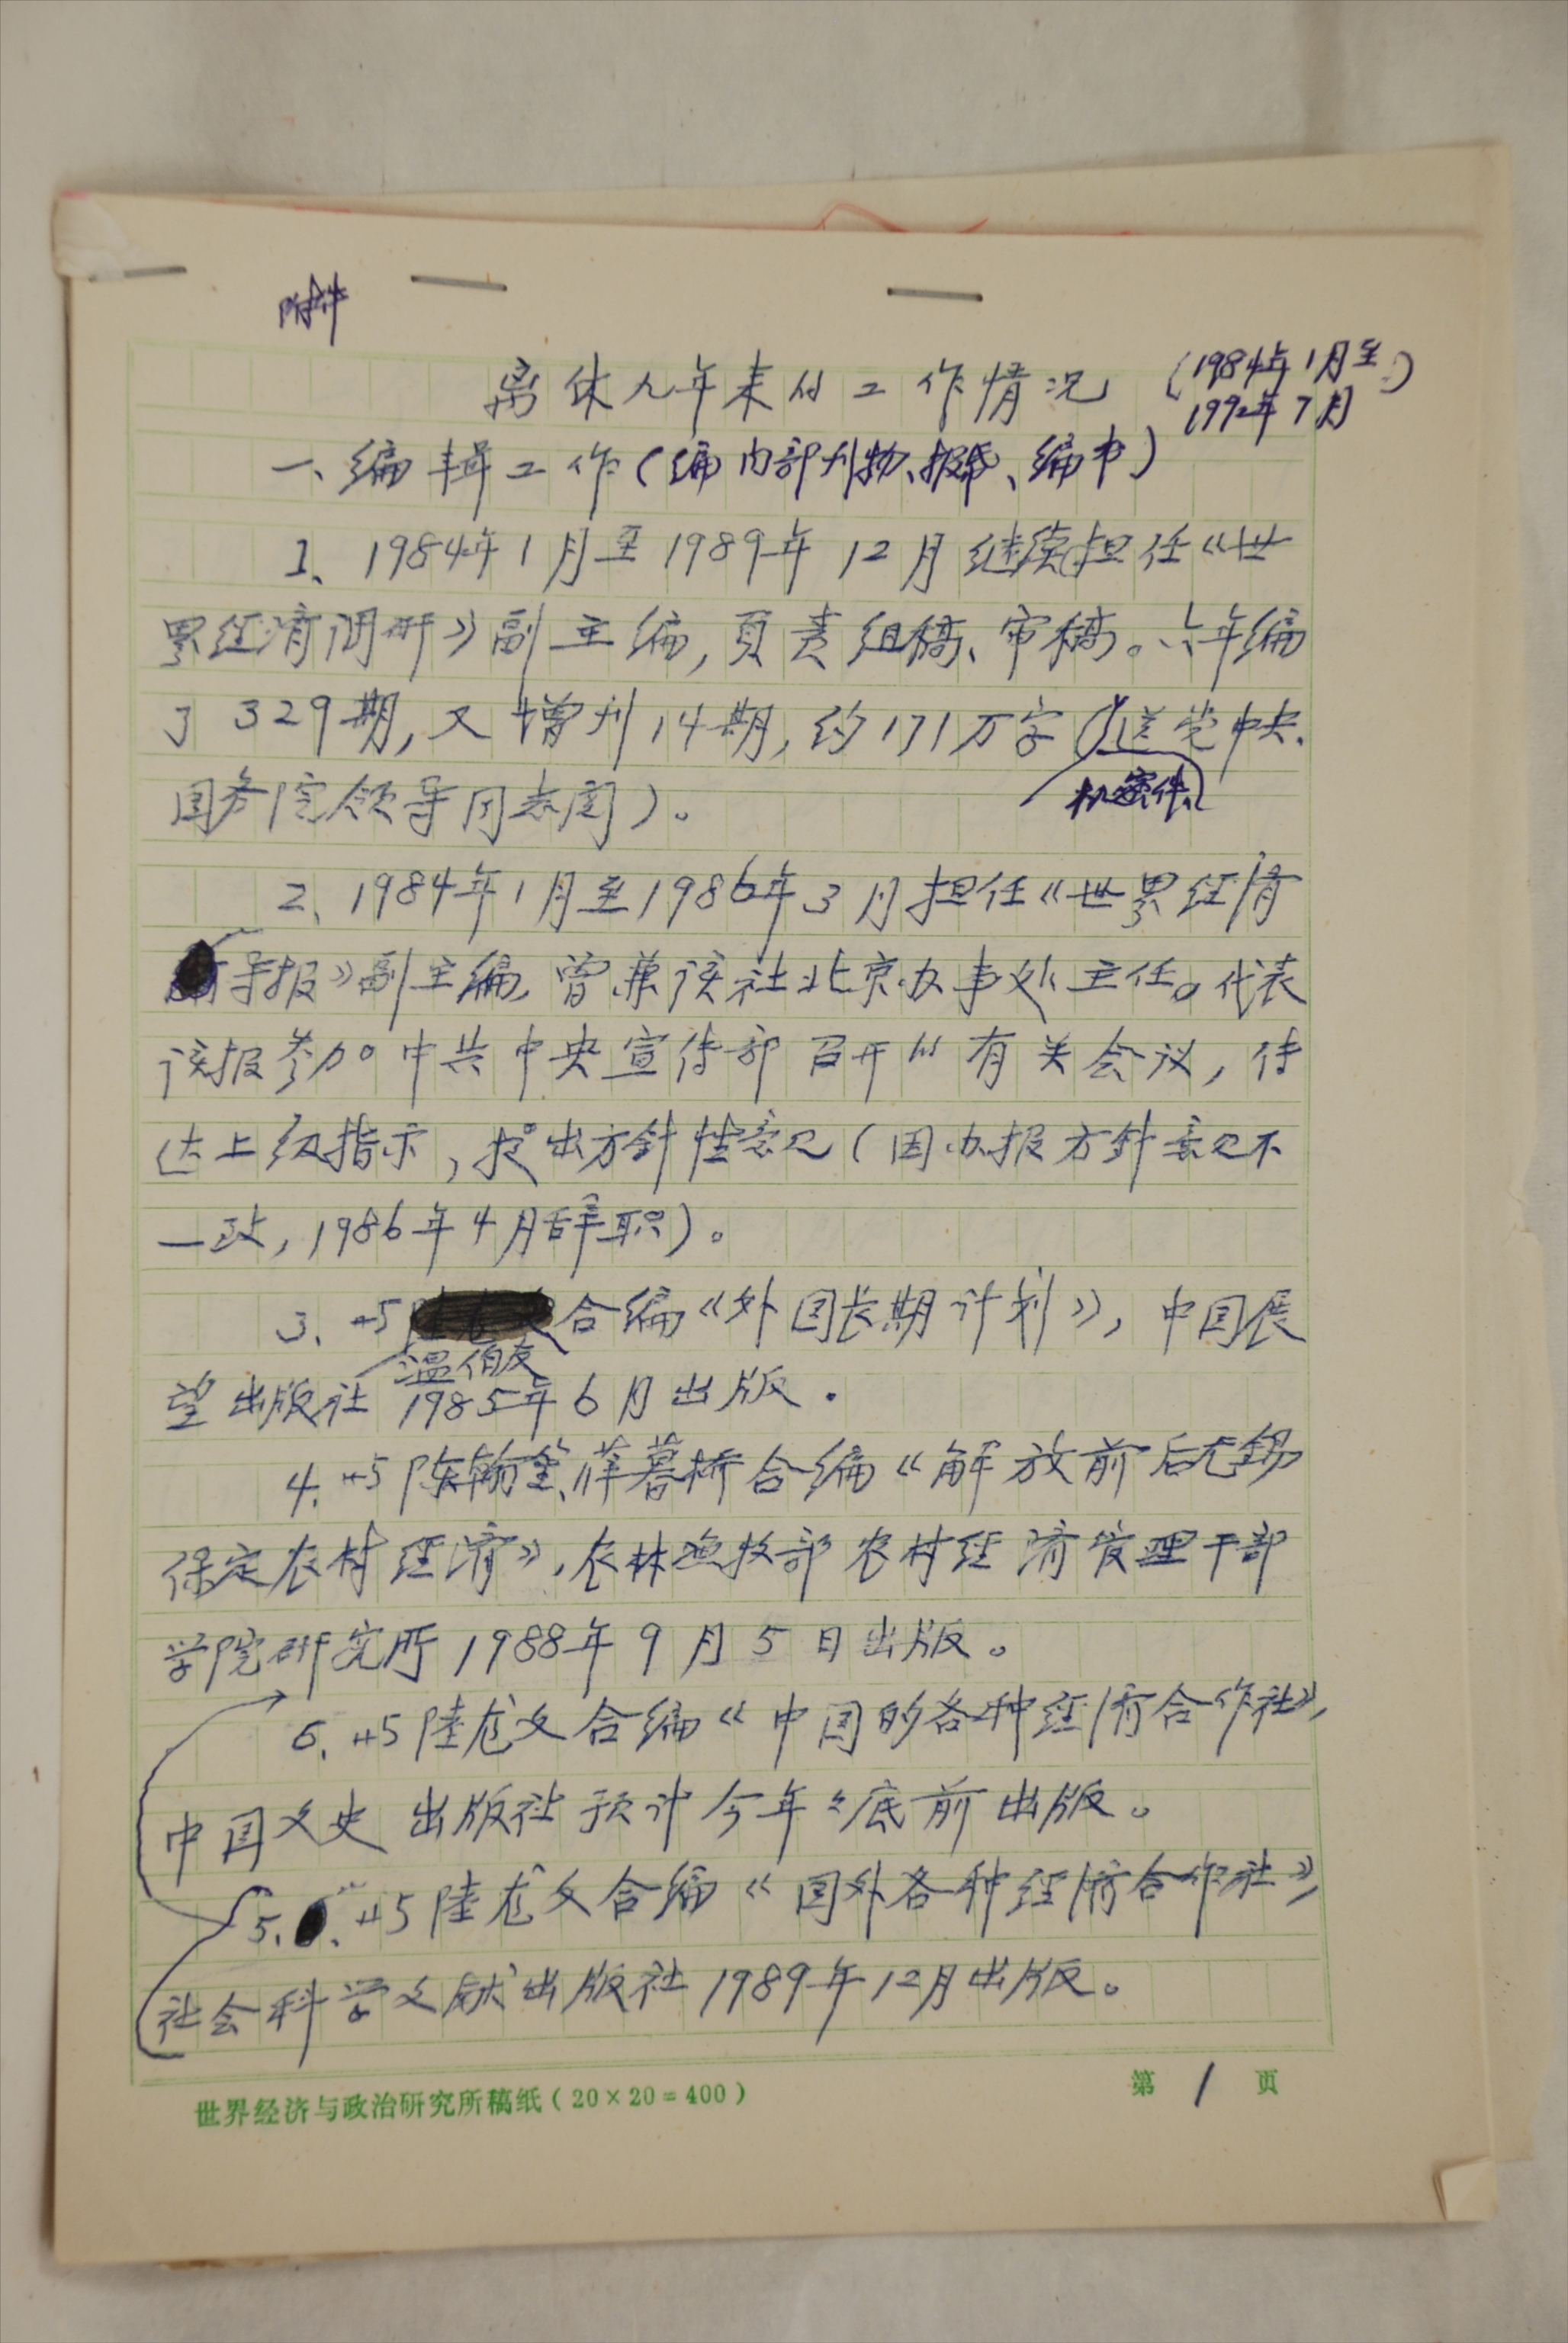 附件
离休九年来的工作情况(1984年1月至
1992年7月)
一、编辑工作(编内部刊物、报纸、编书)
1、1984年1月至1989年12月继续担任《世
界经济调研》副主编,负责组稿、审稿。六年编
了329期,又增刊14期,约171万字(送党中央、
机密件、
国务院领导同志阅)。
2、1984年1月至1986年3月担任《世界经济
导报》副主编,曾兼该社北京办事处主任。代表
该报参加中共中央宣传部召开的有关会议,传
达上级指示,提出方针性意见(因办报方针意见不
一致,1986年4月辞职)。
3、与合编《外国长期计划》,中国展
温伯友
望出版社1985年6月出版.
4、与陈翰笙、薛暮桥合编《解放前后无锡
保定农村经济》,农林渔牧部农村经济管理干部
学院研究所1988年9月5日出版。
6、与陆龙文合编《中国的各种经济合作社》,
中国文史出版社预计今年年底前出版。
5、与陆龙文合编《国外各种经济合作社》,
社会科学文献出版社1989年12月出版。
世界经济与政治研究所稿纸(20×20=400)
第1页